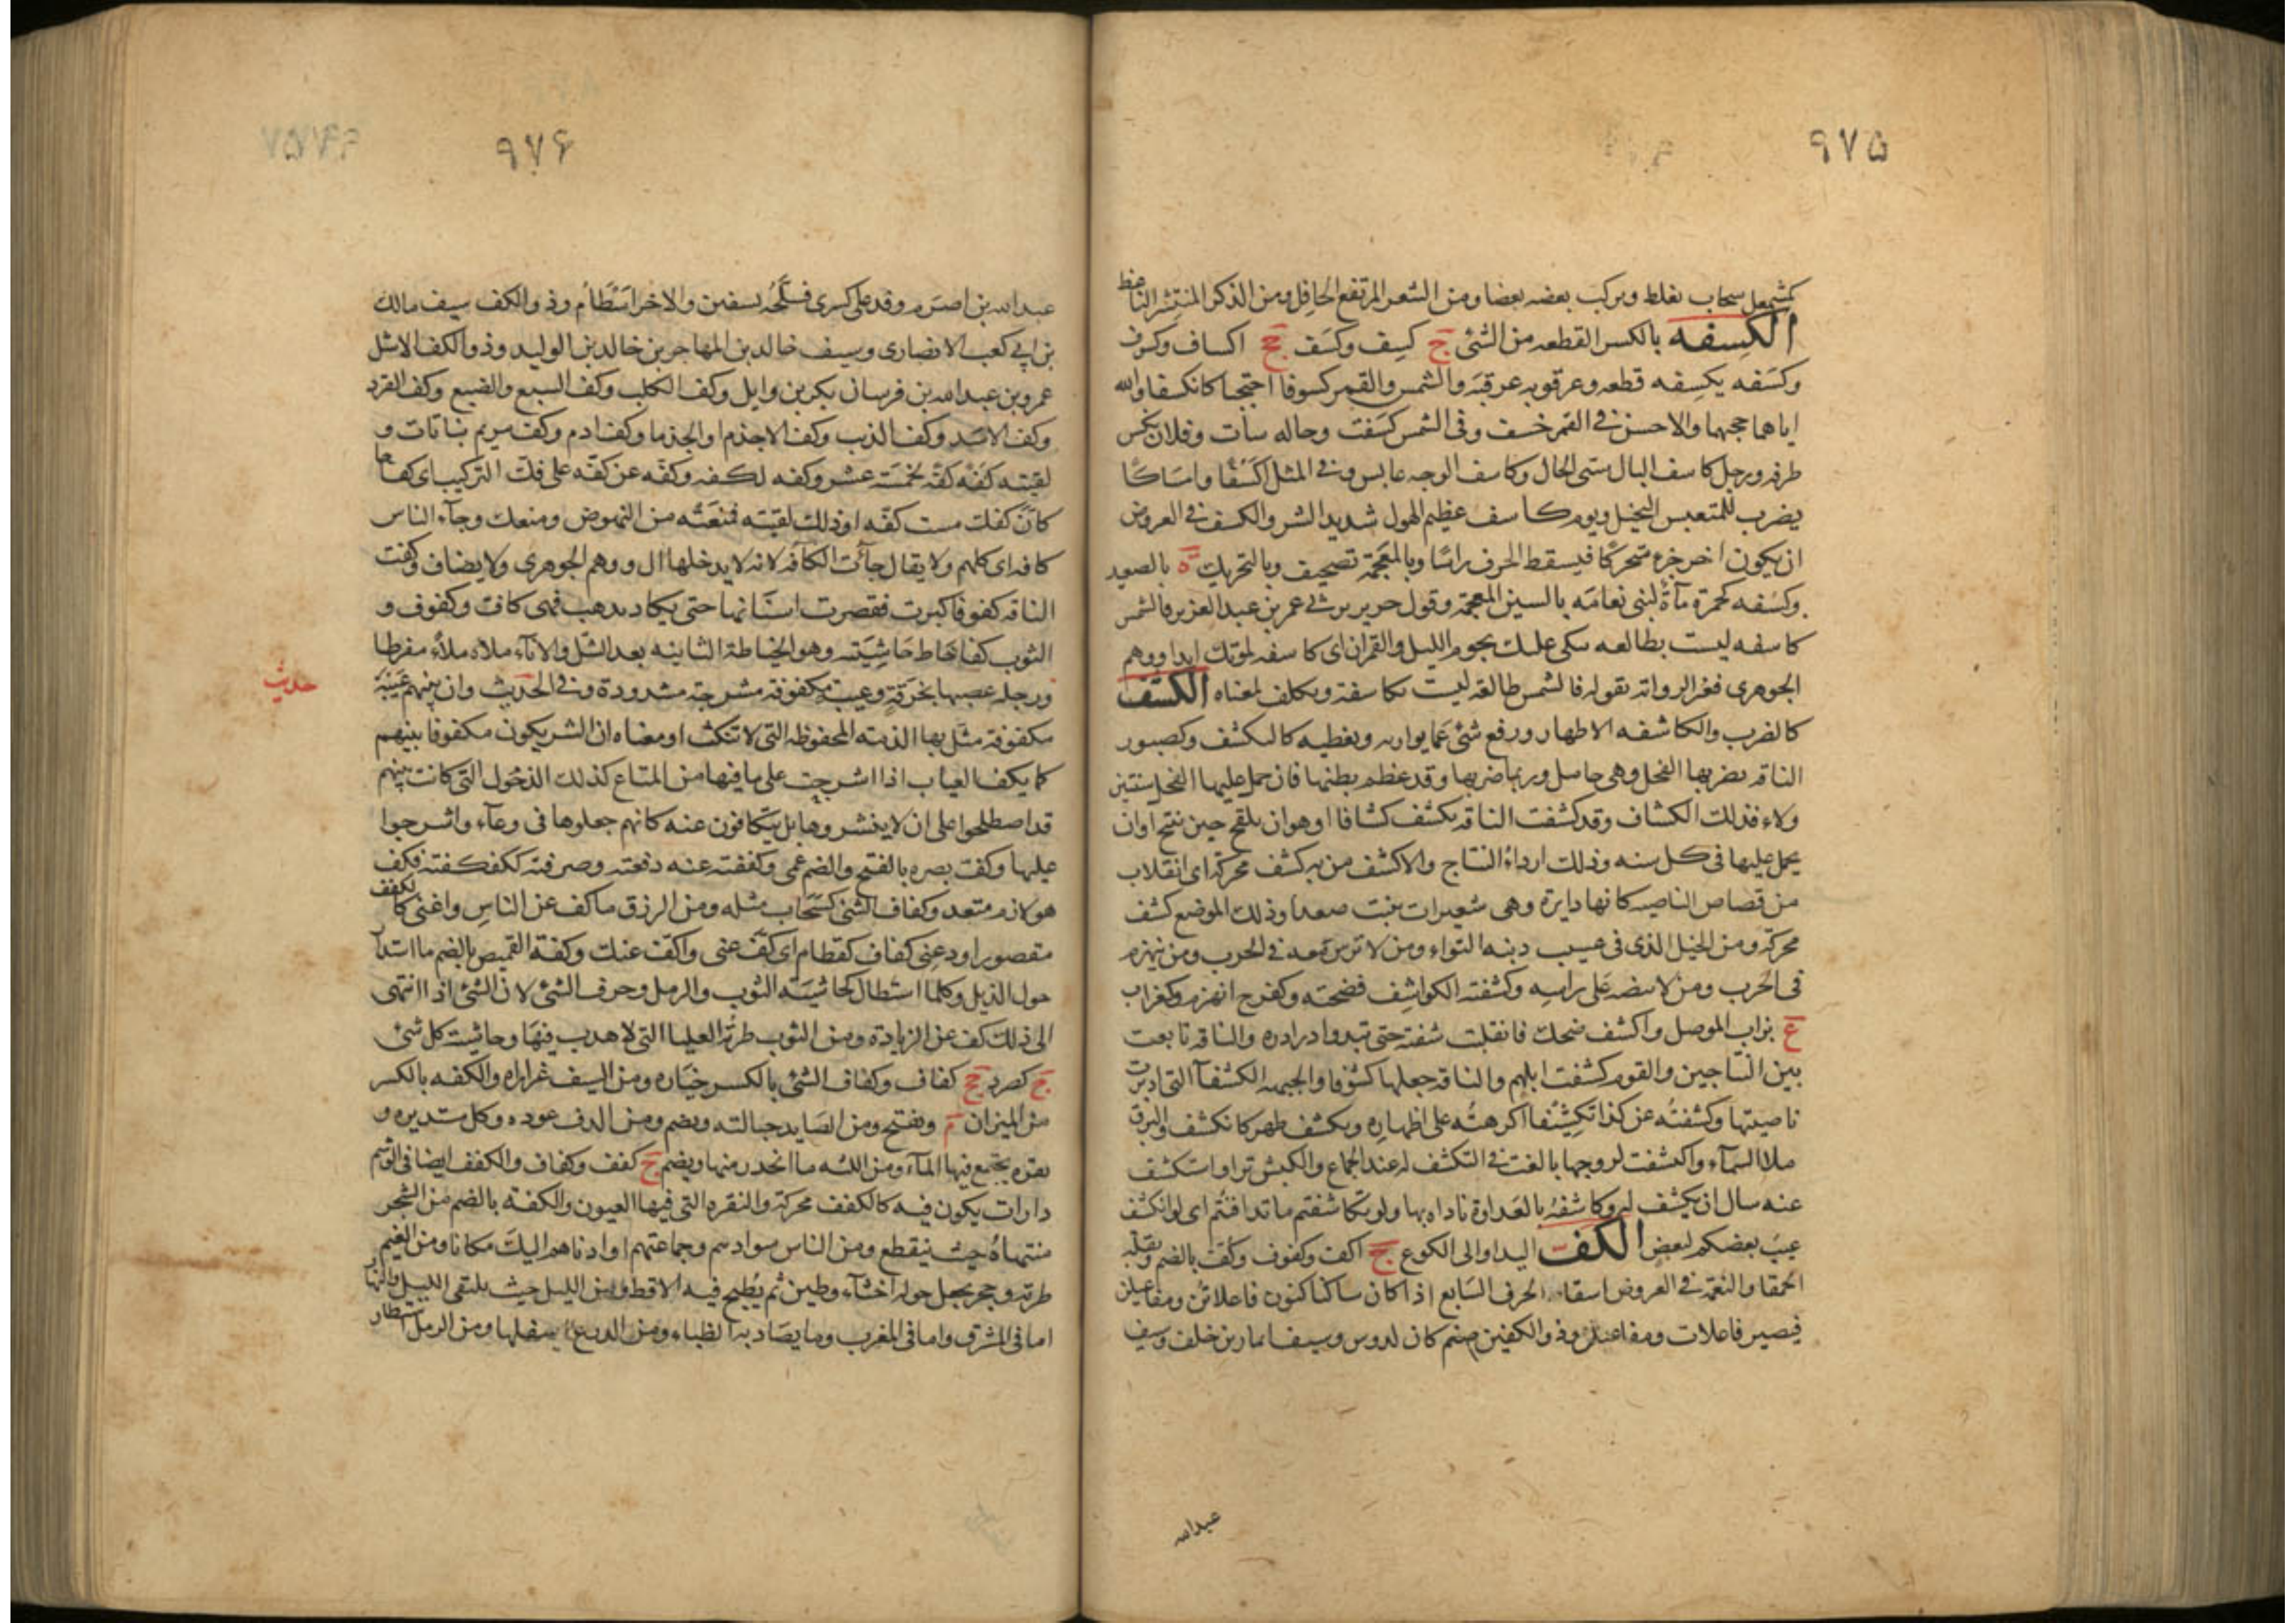 ٩٧۵
كمشمعل سحاب يغلط ويركب بعضه بعضا ومن الشعر المرتفع الحافل ومن الذكر المنتشر الناعظ
الكسفه بالكسر القطعه من الشئ ج كسف وكسَف جج اكساف وكسوف
وكسَفه يكسِفه قطعه وعرقوبه عرقبَه والشمس والقمر كسوفا احتجبا كانكسفا والله
اياهما حجبهما والاحسن في القمر خسف وفي الشمس كسَفت وحاله سأت وفلان نكس
طرفه ورجل كاسف البال سئ الحال وكاسف الوجه عابس وفي المثل اكسْفًا وامسَاكًا
يضرب للمتعبس البخيل ويوم كاسف عظيم الهول شديد الشر والكسف في العروض
ان يكون اخر جزء متحركًا فيسقط الحرف راسًا وبالمعجَمة تصحيف وبالتحريك ة بالصعيد
وكسَفه كحمزة مآءةٌ لبنى نعامَه بالسين المعجمة وقول جرير يرثي عمر بن عبد العزيز فالشمس
كاسفه ليست بطالعه تبكى عليك نجوم الليل والقمرا اى كاسفه لموتك ابدا ووهم
الجوهرى فغير الرواية بقوله فالشمس طالعة ليست بكاسفة وتكلف لمعناه الكشف
كالضرب والكاشفه الاظهار ورفع شئ عَما يواريه ويغطيه كالتكشف وكصبور
الناقه يضربها الفحل وهى حامل وربما ضربها وقد عظم بطنها فان حمل عليها الفحل سنتين
ولاء فذلك الكشاف وقد كشفت الناقه تكشف كشافا اوهوان يلقح حين ينتج اوان
يحمل عليها فى كل سنه وذلك ارداءُ النتاج والاكشف من به كشف محركة اى انقلاب
من قصاص الناصيه كانها دايرة وهى شعيرات ينبت صعدا وذلك الموضع كشف
محركة ومن الخيل الذى فى عسيب ذنبه التواء ومن لا ترس معه في الحرب ومن ينهزم
فى الحرب ومن لا بيضه على راسِه وكشفته الكواشف فضحته وكفرح انهزم وكغراب
ع بزاب الموصل واكشف ضحك فانقلبت شفته حتى تبدوا درادره والناقه تابعت
بين النتاجين والقوم كشفت ابلهم والناقه جعلها كشوفا والجبهه الكشفآ التى ادبرت
ناصيتها وكشفتُه عن كذا تكشِيفًا اكرهتُه على اظهاره وتكشف ظهر كانكشف والبرق
ملا السمآء واكتشفت لزوجها بالغت في التكشف له عند الجماع والكبش نزا واستكشف
عنه سال ان يكشف له وكاشفهُ بالعَداوة باداه بها ولو تكاشفتم ما تدافنتُم اى لو انكشف
عيبَ بعضكم لبعضٍ الكَفّ اليد او الى الكوع ج اكف وكفوف وكُفّ بالضم وبقلة
الحمقا والنعمة في العروض اسقاط الحرف السَابع اذا كان ساكنا كنون فاعلاتن ومفاعيلن
فيصير فاعلات ومفاعيل وذو الكفين صنم كان لدوس وسيف انمار بن خلف وسيف
عبدالله
٩٧۶
عبدالله بن اصرَم وفد على كسرى فسلّحُه بسفين والاخر اسَطَام وذو الكف سيف مالك
بن ابي كعب الانصارى وسيف خالد بن المهاجر بن خالد بن الوليد وذو الكف الاشل
عمرو بن عبدالله بن فرسان بكر بن وايل وكف الكلب وكف السبع والضبع وكف القرد
وكف الاسَد وكف الذيب وكف الاجذم او الجذما وكف ادم وكف مريم نباتات و
لقيته كفَّة كفَّة لخمسَة عشر وكفه لكفه وكفّه عن كفّه على فلّت التركيب اى كفاحا
كانّ كفك مست كفّه او ذلك لقيته فمنعَتُه من النهوض ومنعك وجآء الناس
كافه اى كلهم ولا يقال جآئت الكافه لانه لا يدخلها ال ووهم الجوهرى ولا يضاف وكفت
الناقه كفوفا كبرت فقصرت اسنانها حتى يكاد يذهب فهى كاف وكفوف و
الثوب كفا خاط حَاشِيَته وهو الخياطة الثانيه بعد الشّل والاناء ملاه ملاء مفرطا
ورجله عصبها بخرقةٍ وعيبةٍ مكفوفة مشرجة مشدودة وفي الحديث وان بينهم عَيبَة
حديث
مكفوفة مثّل بها الذمه المحفوظه التى لا تنكث او معناه ان الشر يكون مكفوفا بينهم
كما يكف العياب اذا اشرجت على ما فيها من المتاع كذلك الذحُول التى كانت بينهم
قد اصطلحوا على ان لا ينشروها بل يتكافون عنه كانهم جعلوها فى وعآء واشرجوا
عليها وكف بصره بالفتح والضم عمى وكففته عنه دفعته وصرفته ككفكفته فكف
هو لازم متعد وكفاف الشئ كسَحَاب مثله ومن الرزق ماكف عن الناسِ واغنى كالكفف
مقصورا ودعنِى كفاف كقطام اى كفّ عنى واكف عنك وكفة القميص بالضم ما استدار
حول الذيل وكلما استطال كحاشيَة الثوب والرمل وحرف الشئ لان الشئ اذا انتهى
الى ذلك كف عن الزيادة ومن الثوب طرتُه العليا التى لا هدب فيهَا وحاشية كل شئ
ج كصرد جج كفاف وكفاف الشئ بالكسر خيَاره ومن السيف غراره والكفه بالكسر
من الميزان م ويفتح ومن الصَايد حبالته ويضم ومن الدف عوده وكل مستديره و
نقره يجتمع فيها المآء ومن اللثه ما انحدر منها ويضم ج كفف وكفاف والكفف ايضا فى الوشم
دارات يكون فيه كالكفف محركة والنقره التى فيها العيون والكفة بالضم من الشجر
منتهاهُ حيث ينقطع ومن الناس سوادهم وجماعتهم او ادناهم اليك مكانا ومن الغيم
طرته وحجر يجعل حوله اخثآء وطين ثم يُطبخ فيه الاقط ومن الليل حيث يلتقى الليل والنهار
اما فى المشرق واما فى المغرب وما يصَاد به الظباء ومن الدرع اسفلها ومن الرمل استطار